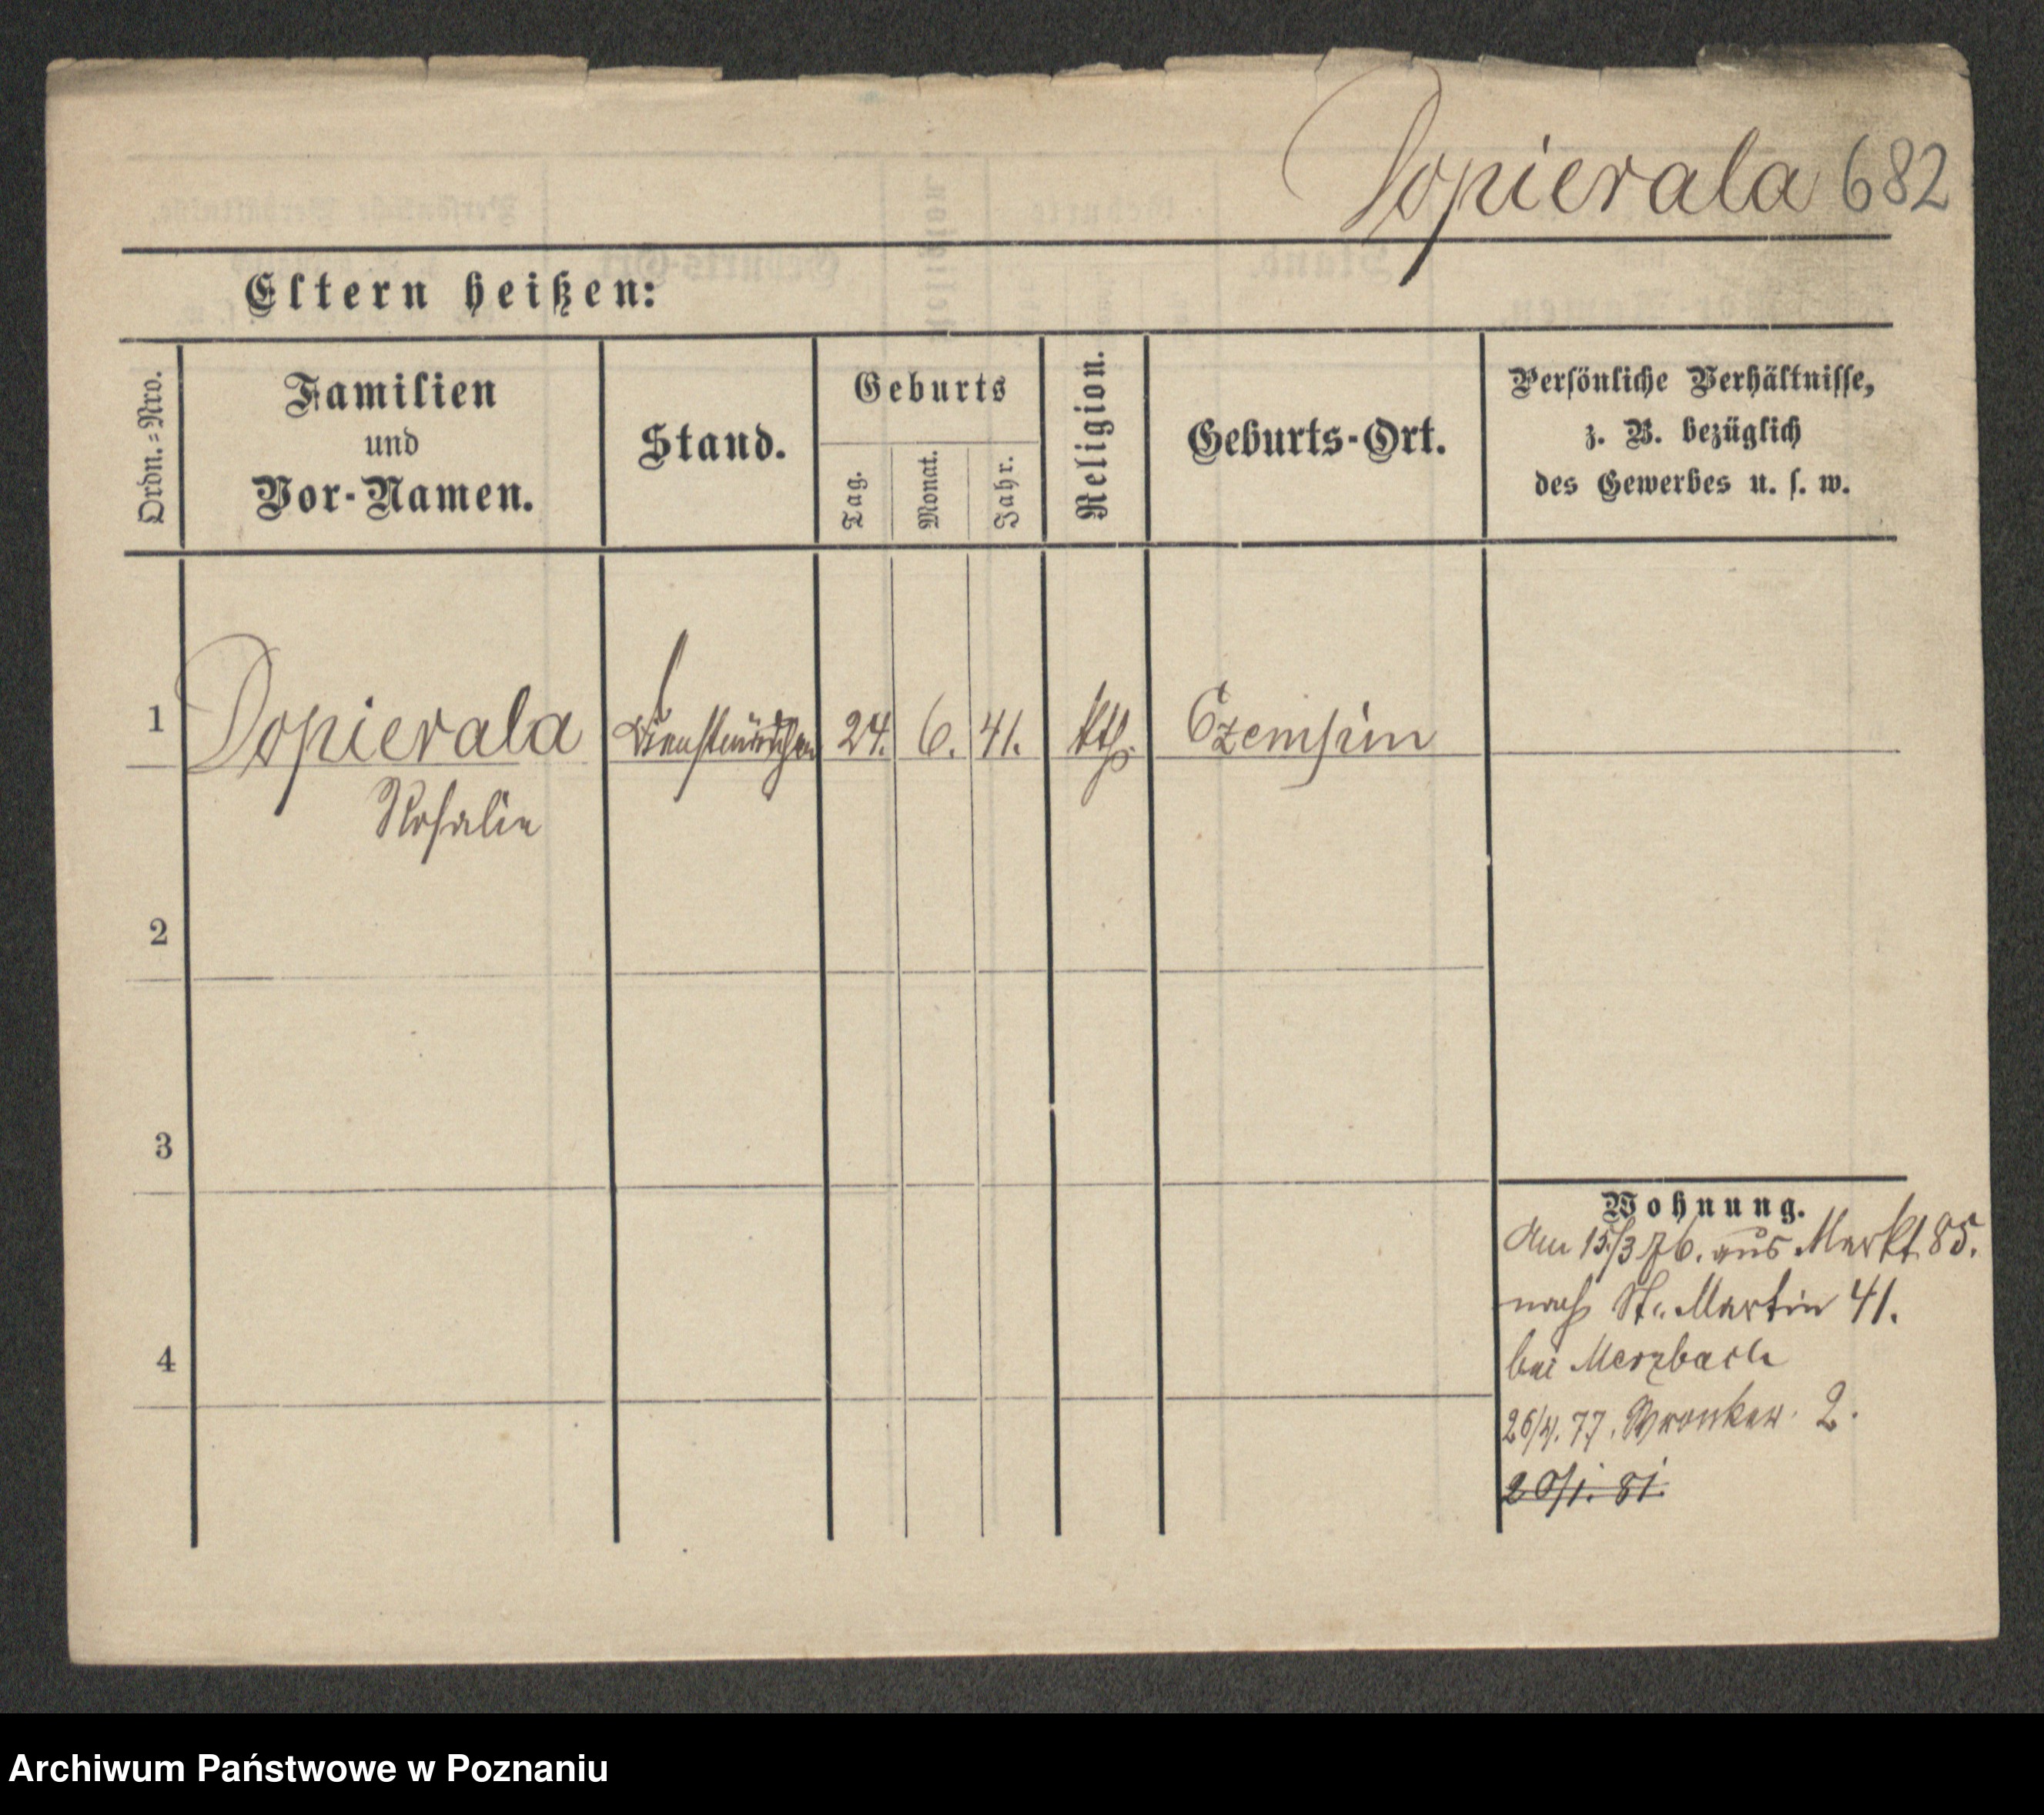 Dopierala 682
Eltern heißen:
Ordn.=Nro.
Familien
und
Vor-Namen.
Stand.
Geburts
Tag.
Monat.
Jahr.
Religion.
Geburts-Ort.
Persönliche Verhältnisse,
z. B. bezüglich
des Gewerbes u. s. w.
1 Dopierala Dienstmädchen 24. 6. 41. kth. Czempin
Rosalie
2
3
4
Wohnung.
Am 15/3 76. aus Markt 85.
nach St. Martin 41.
bei Merzbach
26/4. 77. Wronker. 2.
20/1. 81.
Archiwum Państwowe w Poznaniu